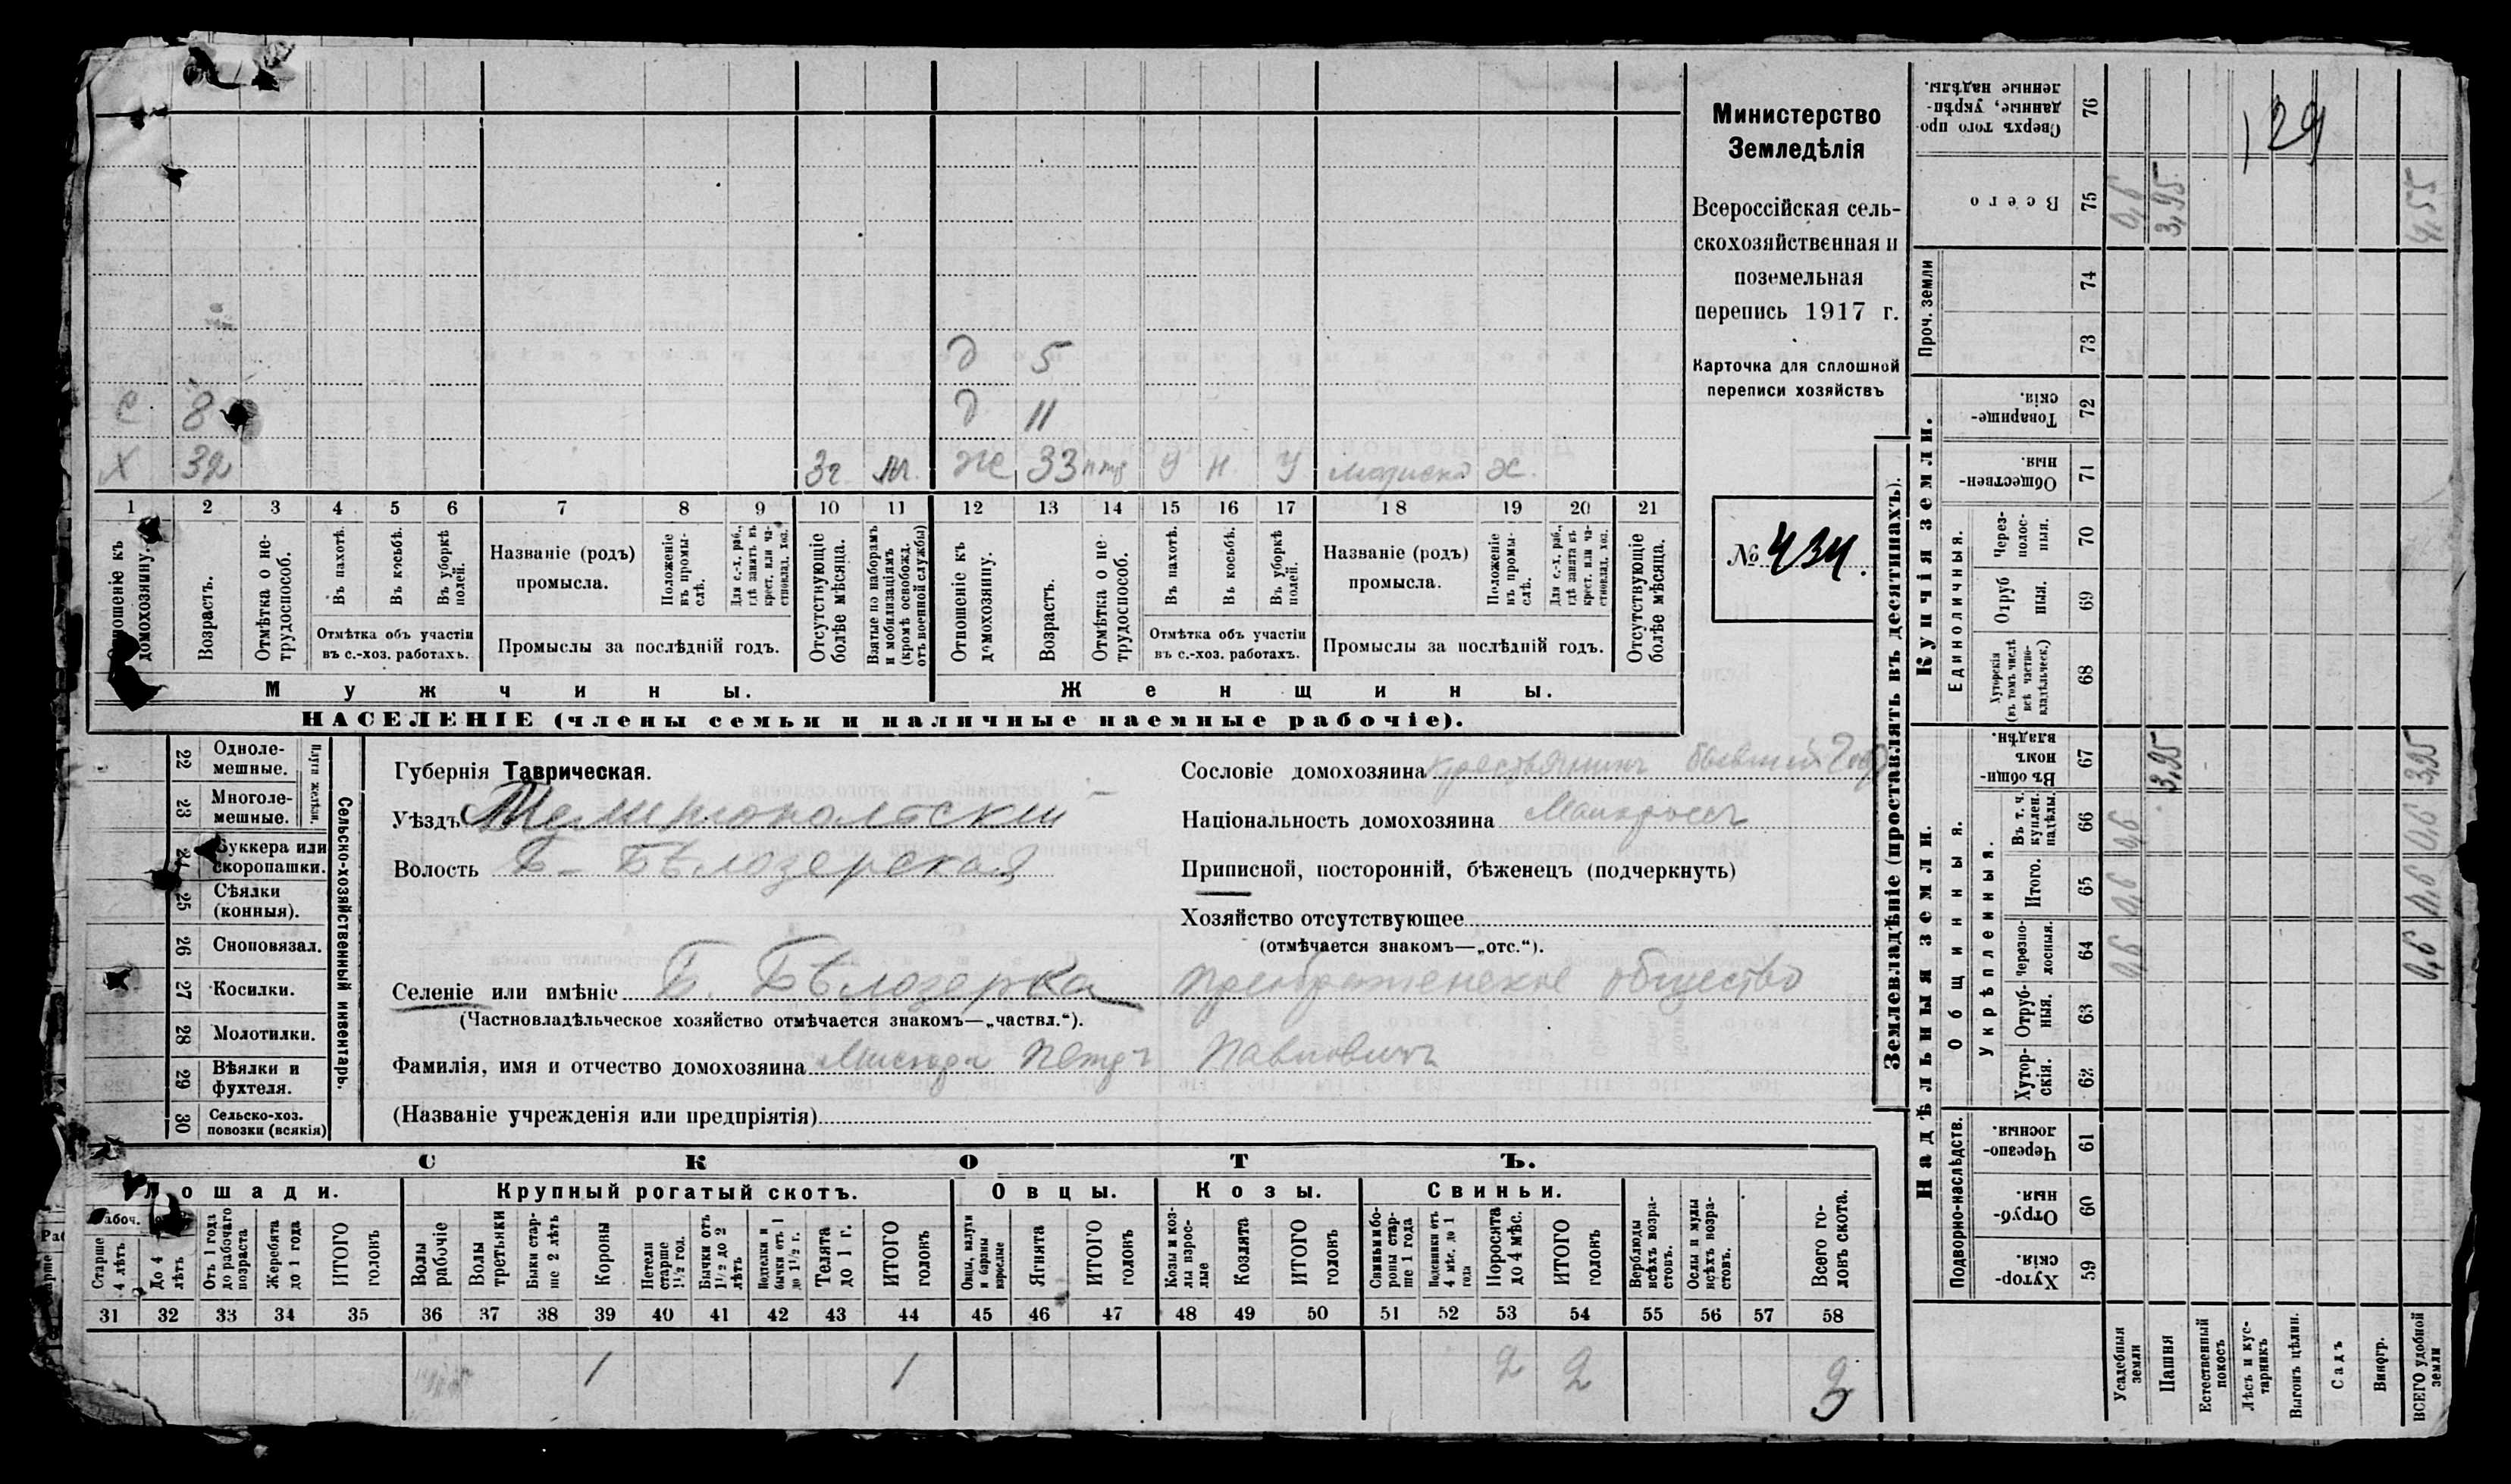 Министерство
Земледѣлія
Всероссійская сель-
скохозяйственная и
поземельная
перепись 1917 г.
Карточка для сплошной
переписи хозяйствъ
№ 434.
129
д 5
С 8 д 11
Х 32 3г. м. Ж 33 У Н. У Х.
1 2 3 4 5 6 7 8 9 10 11 12 13 14 15 16 17 18 19 20 21
Отношеніе къ домохозяину.
Возрастъ.
Отмѣтка о не-трудоспособ.
Въ пахотѣ.
Въ косьбѣ.
Въ уборкѣ полей.
Отмѣтка объ участіи въ с.-хоз. работахъ.
Названіе (родъ) промысла.
Положеніе въ промы-слѣ.
Для с.-х. раб., гдѣ занятъ въ крест. или ча-стновлад. хоз.
Промыслы за послѣдній годъ.
Отсутствующіе болѣе мѣсяца.
Взятые по наборамъ и мобилизаціямъ (кромѣ освобожд. отъ военной службы)
Отношеніе къ домохозяину.
Возрастъ.
Отмѣтка о не трудоспособ.
Въ пахотѣ.
Въ косьбѣ.
Въ уборкѣ полей.
Отмѣтка объ участіи въ с.-хоз. работахъ.
Названіе (родъ) промысла.
Положеніе въ промы-слѣ.
Для с.-х. раб., гдѣ занята въ крест. или ча-стновлад. хоз.
Промыслы за послѣдній годъ.
Отсутствующіе болѣе мѣсяца.
Мужчины. Женщины.
НАСЕЛЕНІЕ (члены семьи и наличные наемные рабочіе).
22 Одноле-мешные.
23 Многоле-мешные.
Плуги желѣзн.
24 Буккера или скоропашки.
25 Сѣялки (конныя).
26 Сноповязал.
27 Косилки.
28 Молотилки.
29 Вѣялки и фухтеля.
30 Сельско-хоз. повозки (всякія)
Сельско-хозяйственный инвентарь.
Губернія Таврическая.
Уѣздъ Мелитопольскій
Волость Б-Бѣлозерская
Сословіе домохозяина крестьянинъ бывшій
Національность домохозяина Малороссъ
Приписной, посторонній, бѣженецъ (подчеркнуть)
Хозяйство отсутствующее
(отмѣчается знакомъ—„отс.“).
Селеніе или имѣніе Б. Бѣлозерка Преображенское общество
(Частновладѣльческое хозяйство отмѣчается знакомъ—„частвл.“).
Фамилія, имя и отчество домохозяина Петръ Павловичъ
(Названіе учрежденія или предпріятія)
СКОТЪ.
Лошади. Крупный рогатый скотъ. Овцы. Козы. Свиньи.
Рабоч.
Старше 4 лѣтъ
До 4 лѣтъ
Отъ 1 года до рабочаго возраста
Жеребята до 1 года
ИТОГО головъ
Волы рабочіе
Волы третьяки
Быки стар-ше 2 лѣтъ
Коровы
Нетели старше 1½ год.
Бычки отъ 1½ до 2 лѣтъ
Подтелки и бычки отъ 1 до 1½ г.
Телята до 1 г.
ИТОГО головъ
Овцы, валухи и бараны взрослые
Ягнята
ИТОГО головъ
Козы и коз-лы взрос-лые
Козлята
ИТОГО головъ
Свиньи и бо-ровы стар-ше 1 года
Подсвинки отъ 4 мѣс. до 1 года
Поросята до 4 мѣс.
ИТОГО головъ
Верблюды всѣхъ возра-стовъ.
Ослы и мулы всѣхъ возра-стовъ.
Всего го-ловъ скота.
31 32 33 34 35 36 37 38 39 40 41 42 43 44 45 46 47 48 49 50 51 52 53 54 55 56 57 58
1 1 2 2 3
Землевладѣніе (проставлять въ десятинахъ).
Надѣльныя земли. Купчія земли. Проч. земли
Подворно-наслѣдств. Общинныя. Укрѣпленныя. Единоличныя.
Сверхъ того про-данные, укрѣп-ленные надѣлы. 76
Всего 75 0,6 3,95 4,55
74
73
Товарище-скія. 72
Обществен-ныя. 71
Через-полос-ныя. 70
Отруб ныя. 69
Хуторскія (въ томъ числѣ всѣ частно-владѣльческ.) 68
Въ общи-номъ владѣн. 67 3,95 3,95
Въ т. ч. куплен. надѣлы. 66 0,6 0,6
Итого. 65 0,6 0,6
Черезпо-лосныя. 64 0,6 0,6
Отруб-ныя. 63
Хутор-скія. 62
Черезпо-лосныя. 61
Отруб-ныя. 60
Хутор-скія. 59
Усадебныя земли
Пашня
Естественный покосъ
Лѣсъ и кус-тарникъ
Выгонъ цѣлин.
Садъ
Виногр.
ВСЕГО удобной земли